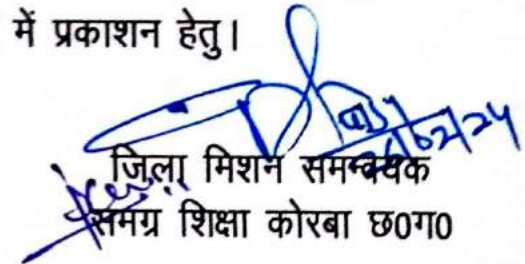 में प्रकाशन हेतु।
26/02/24
जिला मिशन समन्वयक
समग्र शिक्षा कोरबा छ0ग0